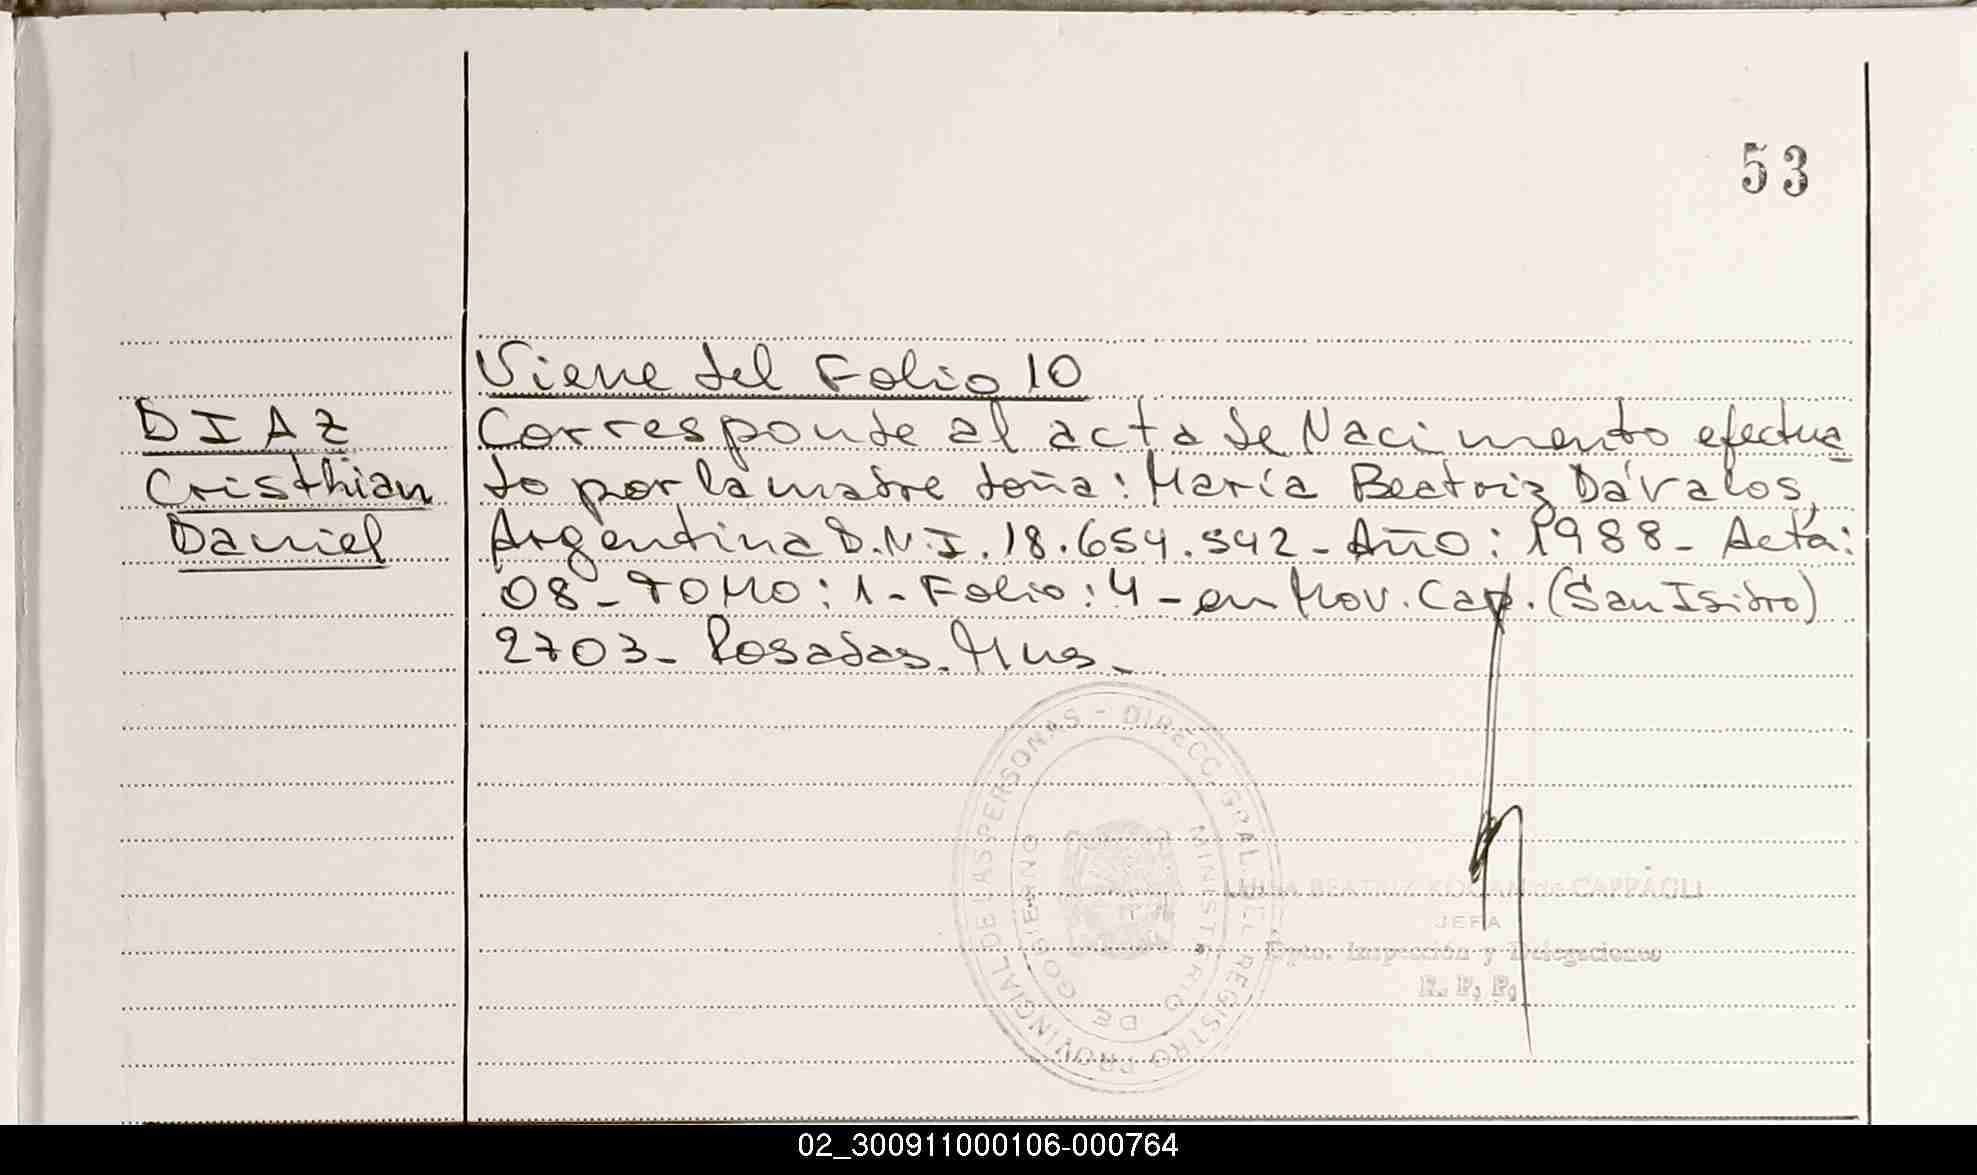 53
Viene del Folio 10
DIAZ
Cristhian
Daniel
Corresponde al acta de Nacimento efectua
do por la madre doña: María Beatriz Dávalos,
Argentina D.N.I. 18.654.542 - Año: 1988 - Acta:
08 - TOMO: 1 - Folio: 4 - en Mov. Cap. (San Isidro)
2703 - Posadas. Mnes.
DIRECC. GRAL. DEL REGISTRO PROVINCIAL DE LAS PERSONAS -
MINISTERIO DE GOBIERNO
BEATRIZ KOGAN de CAPPAGLI
JEFA
Dpto. Inspección y Delegaciones
R. P. P.
02_300911000106-000764